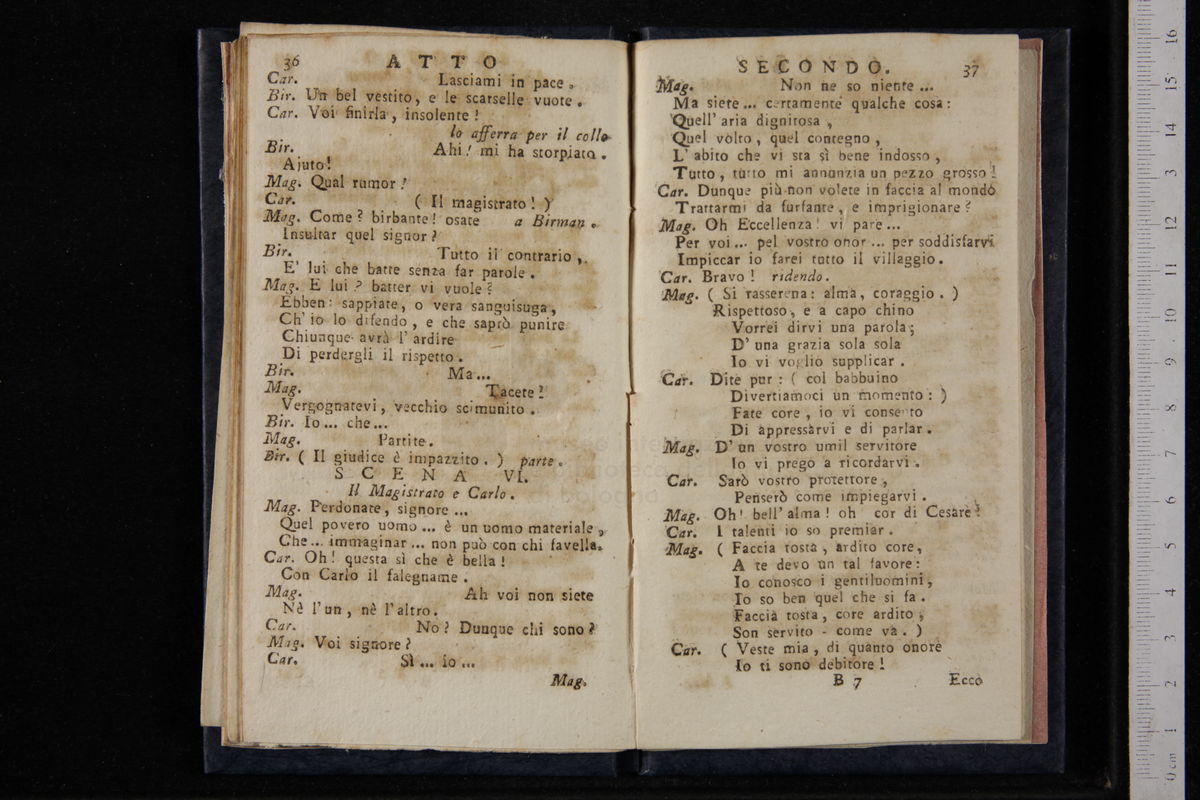 36 ATTO
Car. Lasciami in pace.
Bir. Un bel vestito, e le scarselle vuote.
Car. Voi finirla, insolente!
lo afferra per il collo
Bir. Ahi! mi ha storpiato.
Ajuto!
Mag. Qual rumor!
Car. ( Il magistrato! )
Mag. Come? birbante! osate a Birman.
Insultar quel signor?
Bir. Tutto il contrario,.
E' lui che batte senza far parole.
Mag. E lui? batter vi vuole?
Ebben: sappiate, o vera sanguisuga,
Ch' io lo difendo, e che saprò punire
Chiunque avrà l' ardire
Di perdergli il rispetto.
Bir. Ma...
Mag. Tacete!
Vergognatevi, vecchio scimunito.
Bir. Io... che...
Mag. Partite.
Bir. ( Il giudice è impazzito. ) parte.
SCENA VI.
Il Magistrato e Carlo.
Mag. Perdonate, signore ...
Quel povero uomo ... è un uomo materiale,
Che... immaginar ... non può con chi favella.
Car. Oh! questa sì che è bella!
Con Carlo il falegname.
Mag. Ah voi non siete
Nè l'un, nè l'altro.
Car. No? Dunque chi sono?
Mag. Voi signore?
Car. Sì ... io ...
Mag.
SECONDO. 37
Mag. Non ne so niente ...
Ma siete... certamente qualche cosa:
Quell' aria dignitosa,
Quel volto, quel contegno,
L' abito che vi sta sì bene indosso,
Tutto, tutto mi annunzia un pezzo grosso!
Car. Dunque più non volete in faccia al mondo
Trattarmi da furfante, e imprigionare?
Mag. Oh Eccellenza! vi pare...
Per voi... pel vostro onor ... per soddisfarvi
Impiccar io farei tutto il villaggio.
Car. Bravo! ridendo.
Mag. ( Si rasserena: alma, coraggio. )
Rispettoso, e a capo chino
Vorrei dirvi una parola;
D' una grazia sola sola
Io vi voglio supplicar.
Car. Dite pur: ( col babbuino
Divertiamoci un momento: )
Fate core, io vi consento
Di appressarvi e di parlar.
Mag. D' un vostro umil servitore
Io vi prego a ricordarvi.
Car. Sarò vostro protettore,
Penserò come impiegarvi.
Mag. Oh! bell' alma! oh cor di Cesare!
Car. I talenti io so premiar.
Mag. ( Faccia tosta, ardito core,
A te devo un tal favore:
Io conosco i gentiluomini,
Io so ben quel che si fa.
Faccia tosta, core ardito,
Son servito - come va. )
Car. ( Veste mia, di quanto onore
Io ti sono debitore!
B 7 Ecco